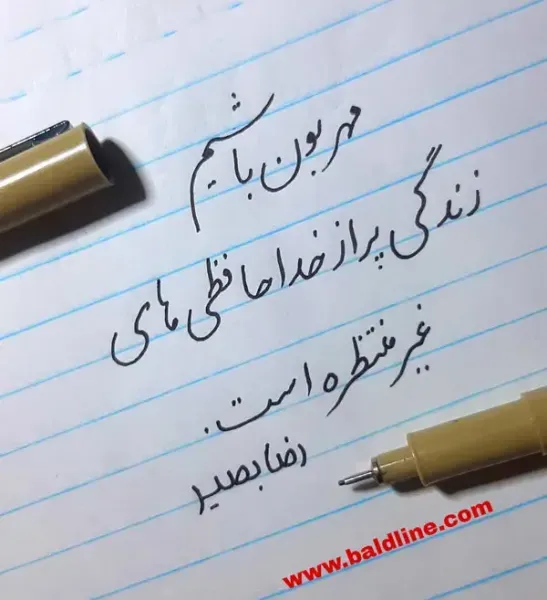 مهربون باشیم
زندگی پر از خداحافظی های
غیر منتظره است.
رضا بصیر
www.baldline.com